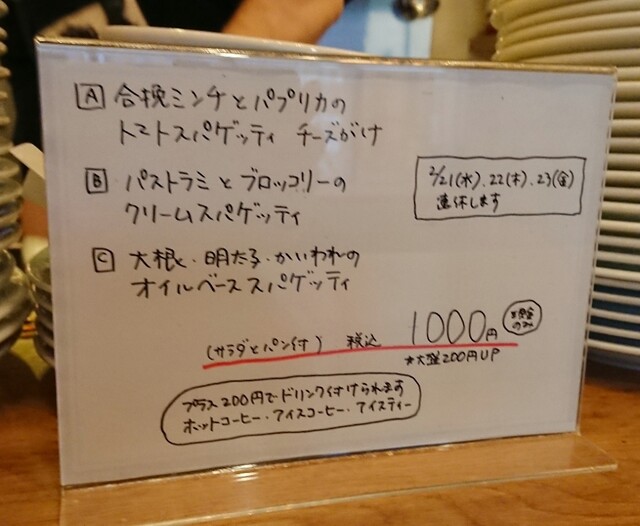 A 合挽ミンチとパプリカの
トマトスパゲッティ チーズがけ
B パストラミとブロッコリーの
クリームスパゲッティ
2/21(水)、22(木)、23(金)
連休します
C 大根と、明太子・かいわれの
オイルベーススパゲッティ
(サラダとパン付) 税込 1000円
※現金のみ
★大盛200円UP
プラス200円でドリンク付けられます
ホットコーヒー・アイスコーヒー・アイスティー